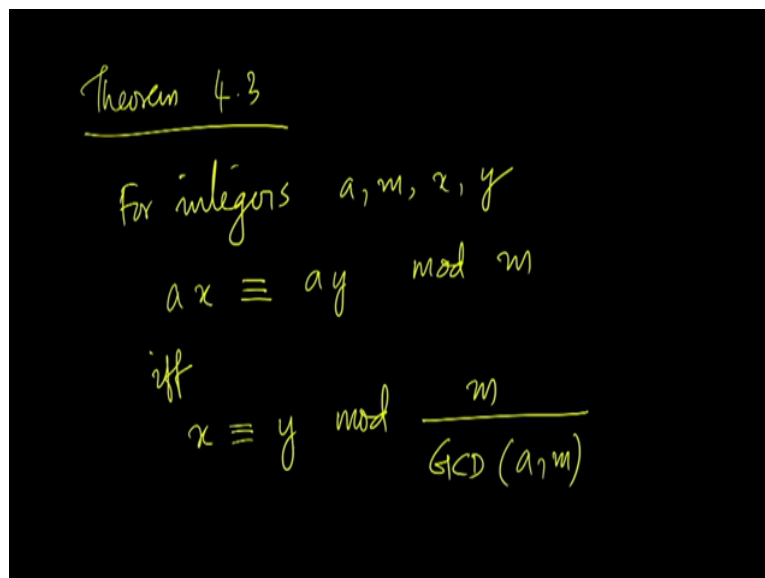 Theorem 4.3
For integers a, m, x, y
ax ≡ ay mod m
iff
x ≡ y mod m / GCD (a, m)